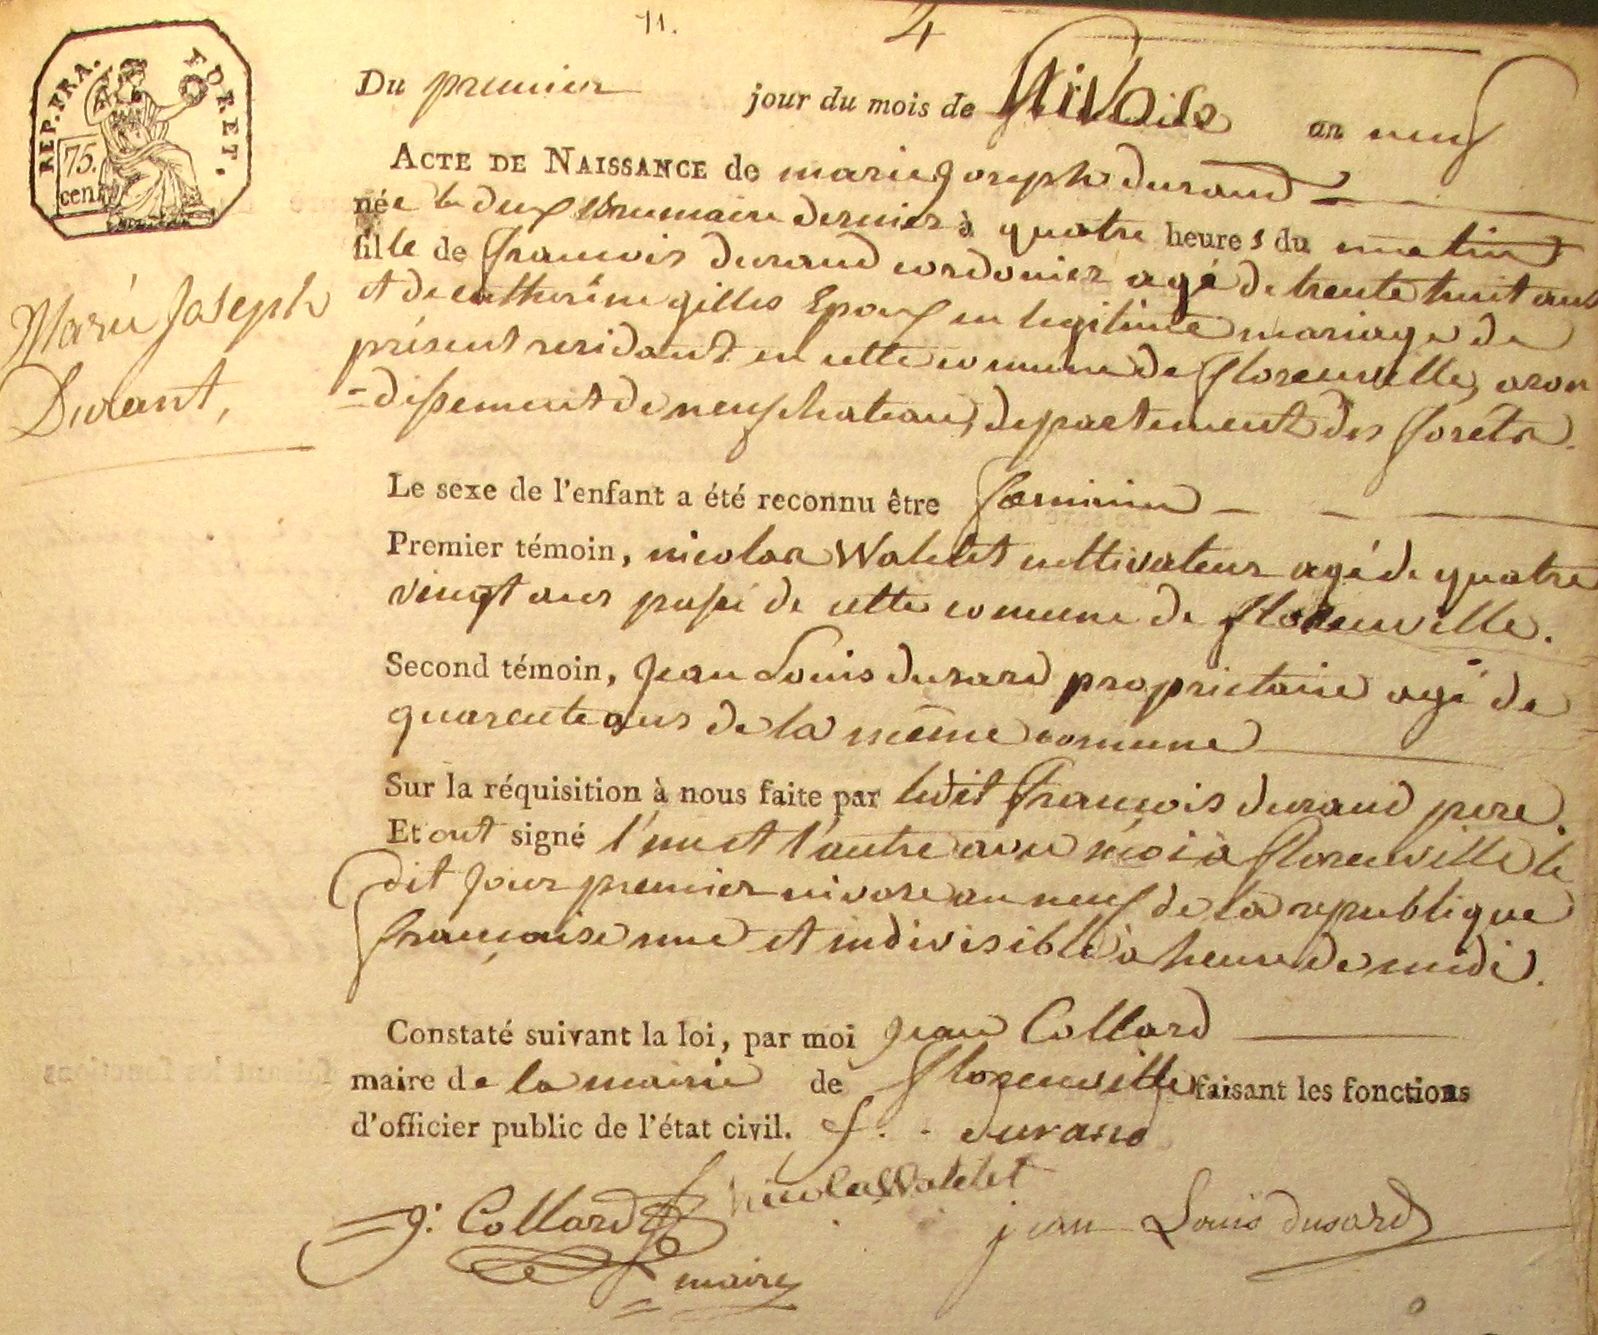 11.
4
REP. FRA.
FORET.
75.
cent
Du premier jour du mois de Nivose an neuf
ACTE DE NAISSANCE de marie Joseph durand
née le deux brumaire dernier à quatre heures du matin
fille de francois durand cordonier agé de trente huit ans
et de catherine gilles Epoux en legitime mariage de
présent residant en cette comune de florenville, aron
-dissement de neufchateau, departement des forêts.
Marie Joseph
Durant,
Le sexe de l'enfant a été reconnu être feminin
Premier témoin, nicolas Watelet cultivateur agé de quatre
vingt ans passé de cette comune de florenville.
Second témoin, Jean Louis dusard proprietaire agé de
quarente ans de la même comune
Sur la réquisition à nous faite par ledit francois durand pere.
Et ont signé l'un et l'autre avec moi à florenville le
dit jour premier nivose an neuf de la republique
française une et indivisible à heure de midi.
Constaté suivant la loi, par moi Jean Collard
maire de la mairie de florenville faisant les fonctions
d'officier public de l'état civil. f. durand
nicolas Watelet
J: Collard
jean Louis dusard
maire